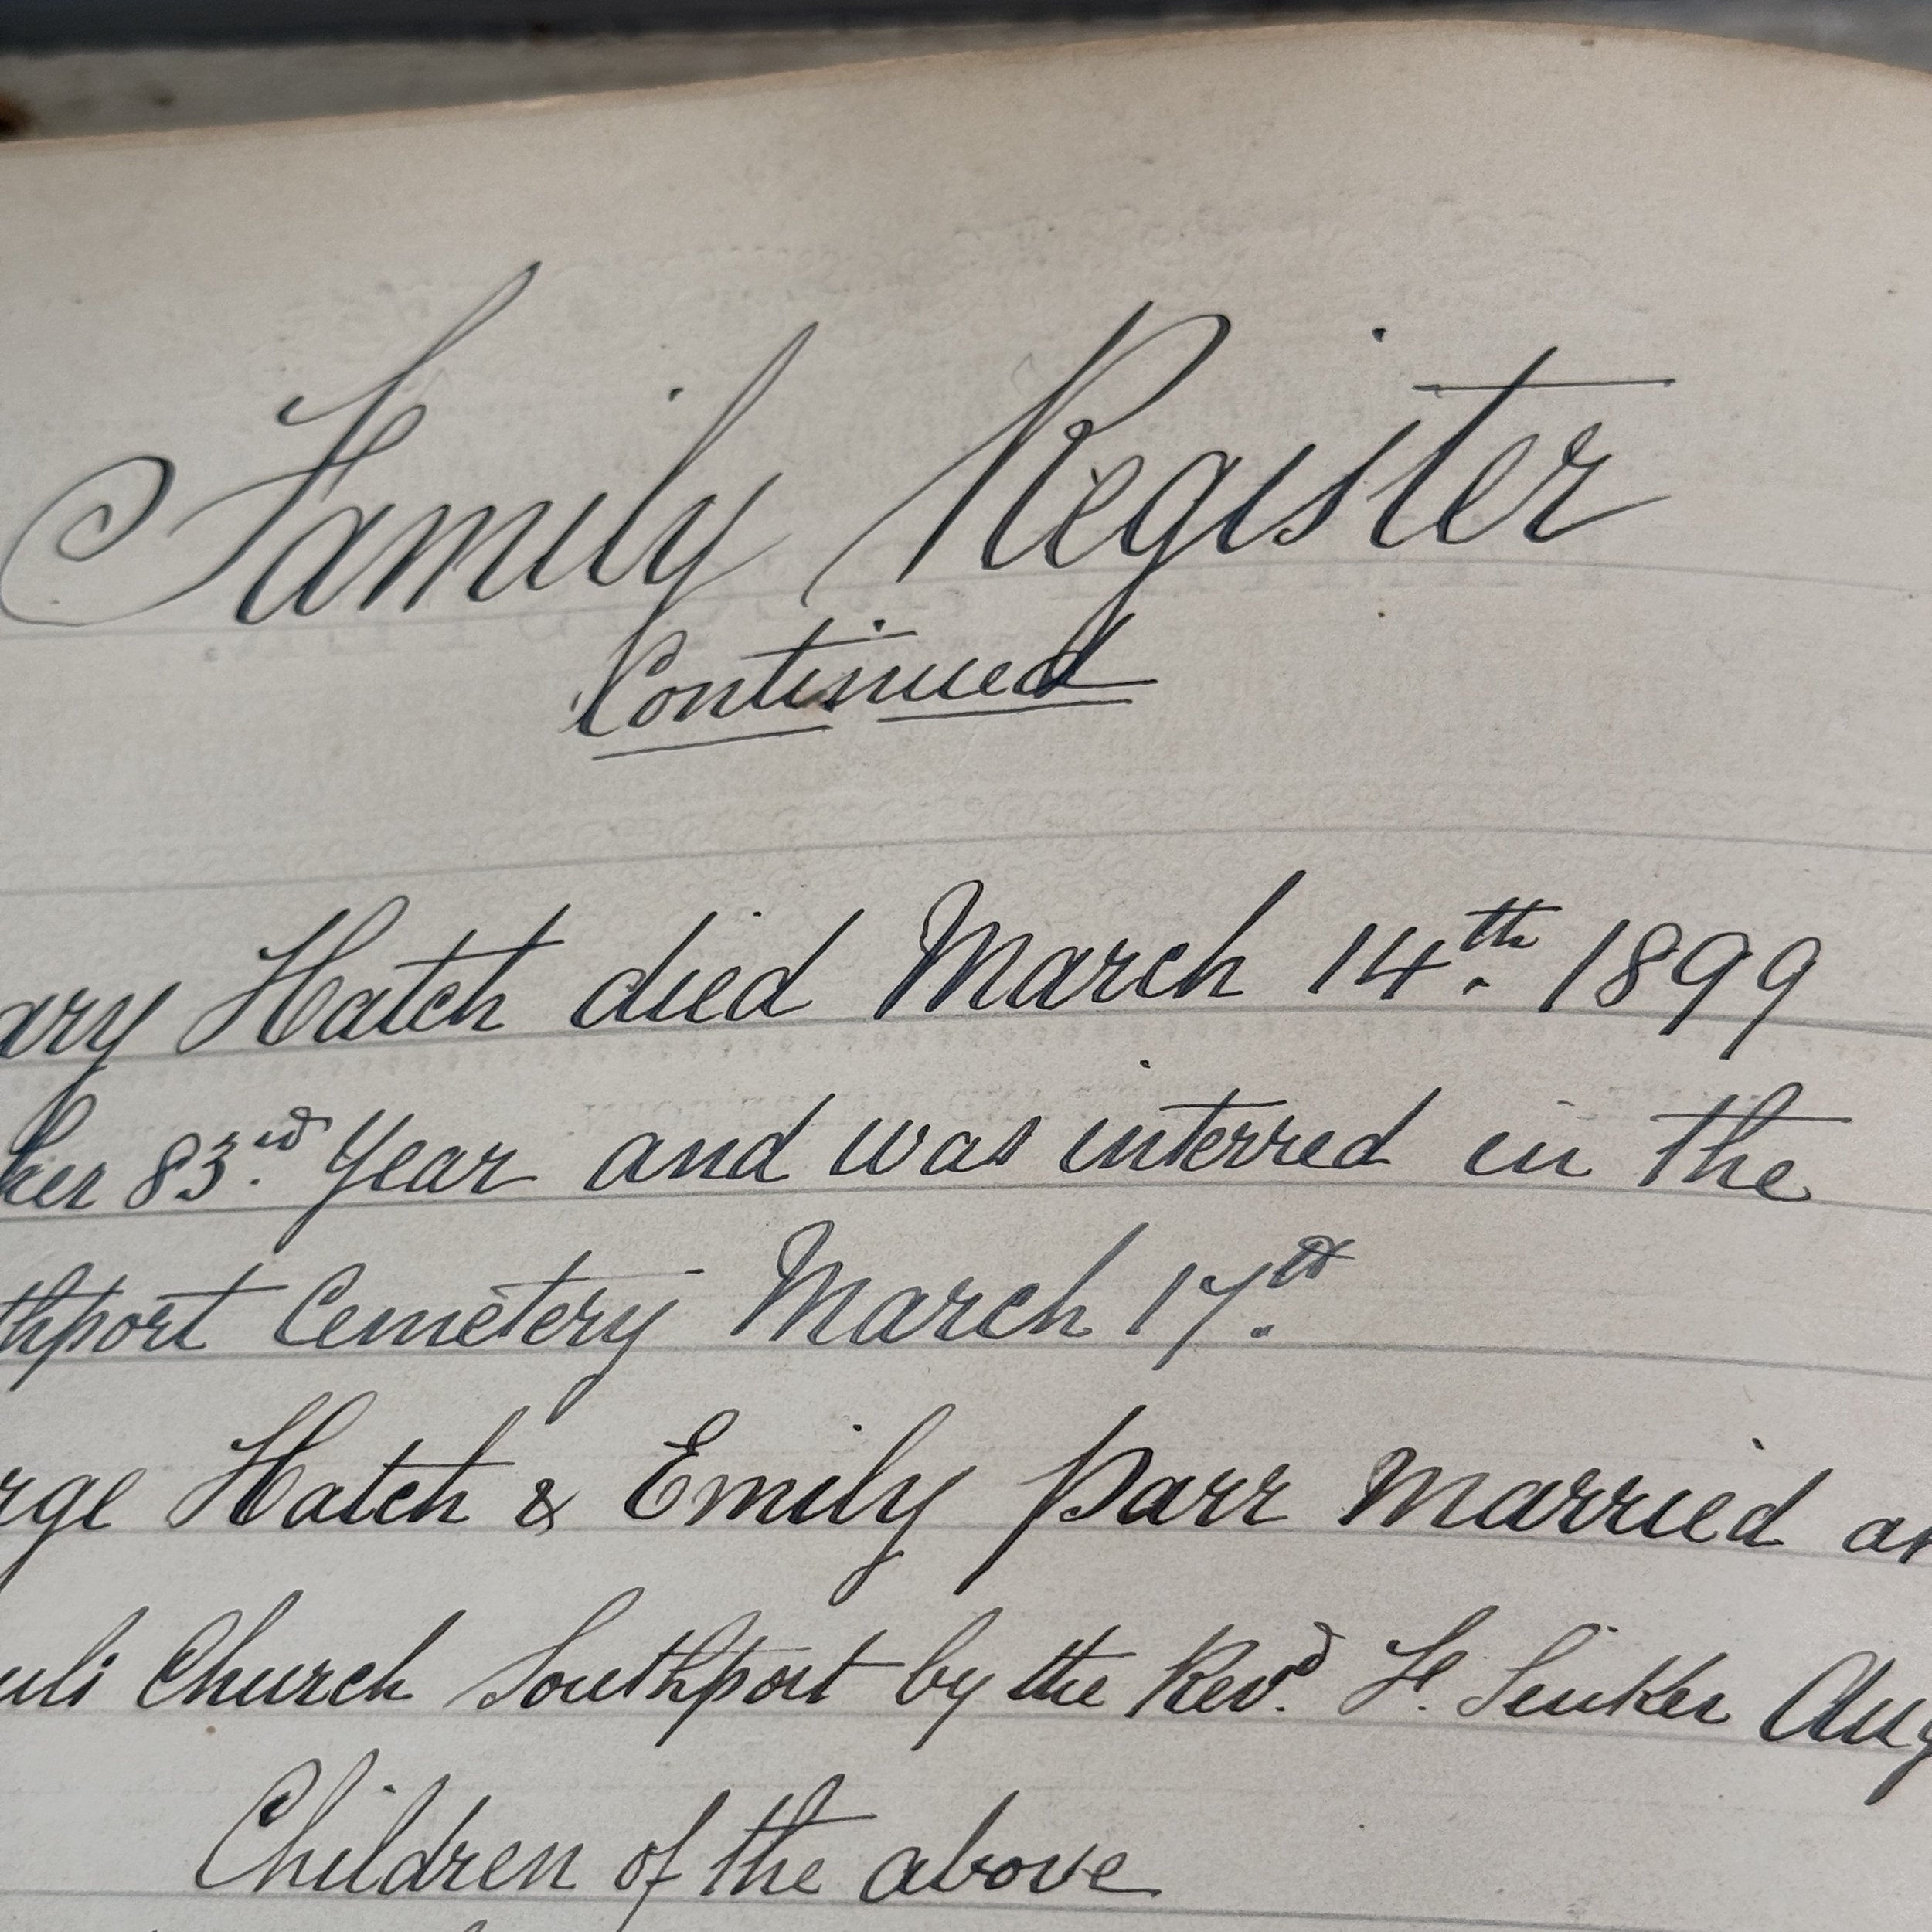 Family Register
Continued
ary Hatch died March 14th. 1899
her 83rd. Year and was interred in the
thport Cemetery March 17th.
rge Hatch & Emily Parr Married at
Church Southport by the Revd. F. Sinker Aug
Children of the above